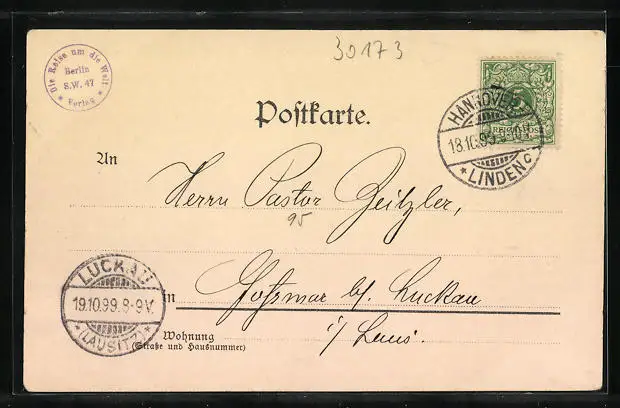 30173
Die Reise um die Welt
Berlin
S.W. 47
* Verlag *
REICHSPOST
HANNOVER
18.10.99. 9-10 V.
* LINDEN C
Postkarte.
An
Herrn Pastor Zeitzler,
95
LUCKAU
19.10.99. 8-9V.
* (LAUSITZ) *
in Goßmar b/. Luckau
i/ Laus.
Wohnung
(Straße und Hausnummer)